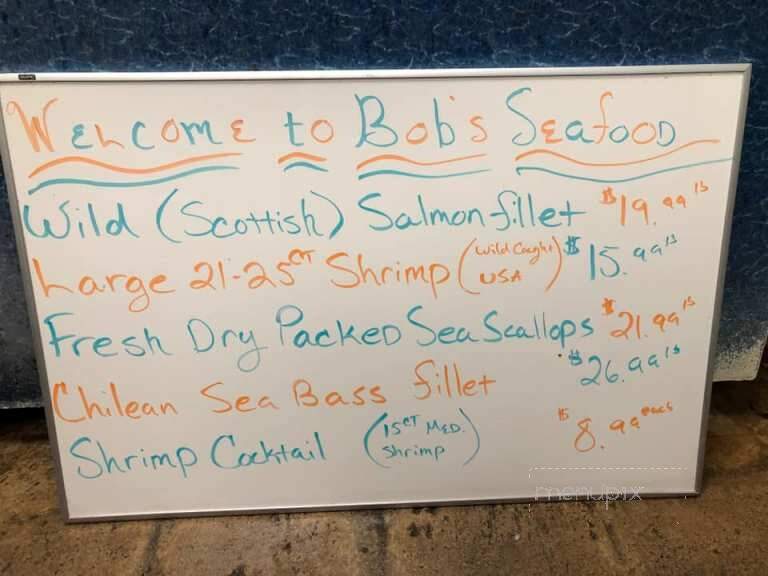 Welcome to Bob's Seafood
Wild (Scottish) Salmon fillet $19.99 lb
Large 21-25 CT Shrimp (Wild Caught USA) $15.99 lb
Fresh Dry Packed Sea Scallops $21.99 lb
Chilean Sea Bass fillet $26.99 lb
Shrimp Cocktail (15 CT MED. Shrimp) $8.99 each
menupix